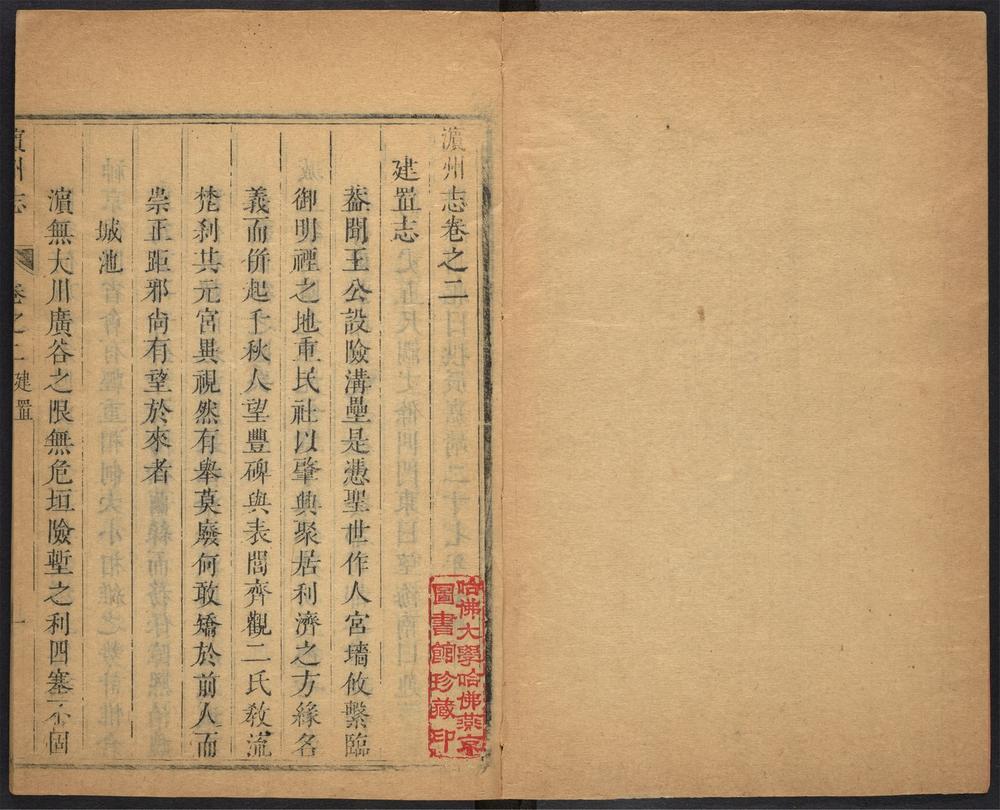 濵州志卷之二
建置志
葢聞王公設險溝壘是憑聖世作人宮墻攸繫臨
御明禋之地重民社以肇興聚居利濟之方緣名
義而併起千秋人望豐碑與表閭齊觀二氏敎流
梵刹共元宮異視然有舉莫廢何敢矯於前人而
崇正距邪尙有望於來者
城池
濵無大川廣谷之限無危垣險塹之利四塞不固
濵州志
卷之二 建置
一
哈佛大學哈佛燕京
圖書館珍藏印